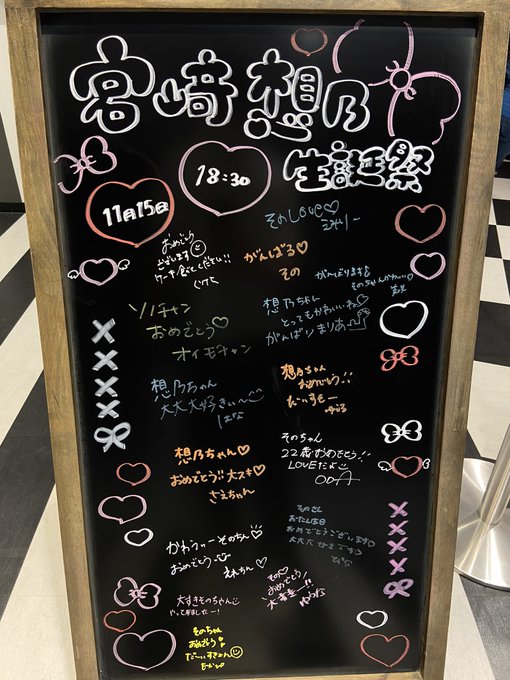 宮崎想乃
生誕祭
11月15日
18:30
そのLove♡
おめでとう
ございます
ケーキ食べてください!!
がんばる♡
その
がんばります
そのちゃんかわいい
ソノチャン
おめでとう♡
オイモチャン
想乃ちゃん
とってもかわいいね♡
がんばりまりあ
想乃ちゃん
大大大好きぃ〜
はな
想乃ちゃん
おめでとう!!
だいすきー
ゆうる
想乃ちゃん♡
おめでとう!!大スキ♡
さえちゃん
そのちゃん
22歳おめでとう!!
LOVEだよ
ODA
かわうぃーそのちん
おめでとう
えれちん♡
そのさん
お誕生日
おめでとうございます
大大大好きです
ひな
大すきそのちゃん
やってきましたー!
その♡
おめでとう
大好きー!!
ゆうな
そのちゃん
おめでとう
だーいすきよん